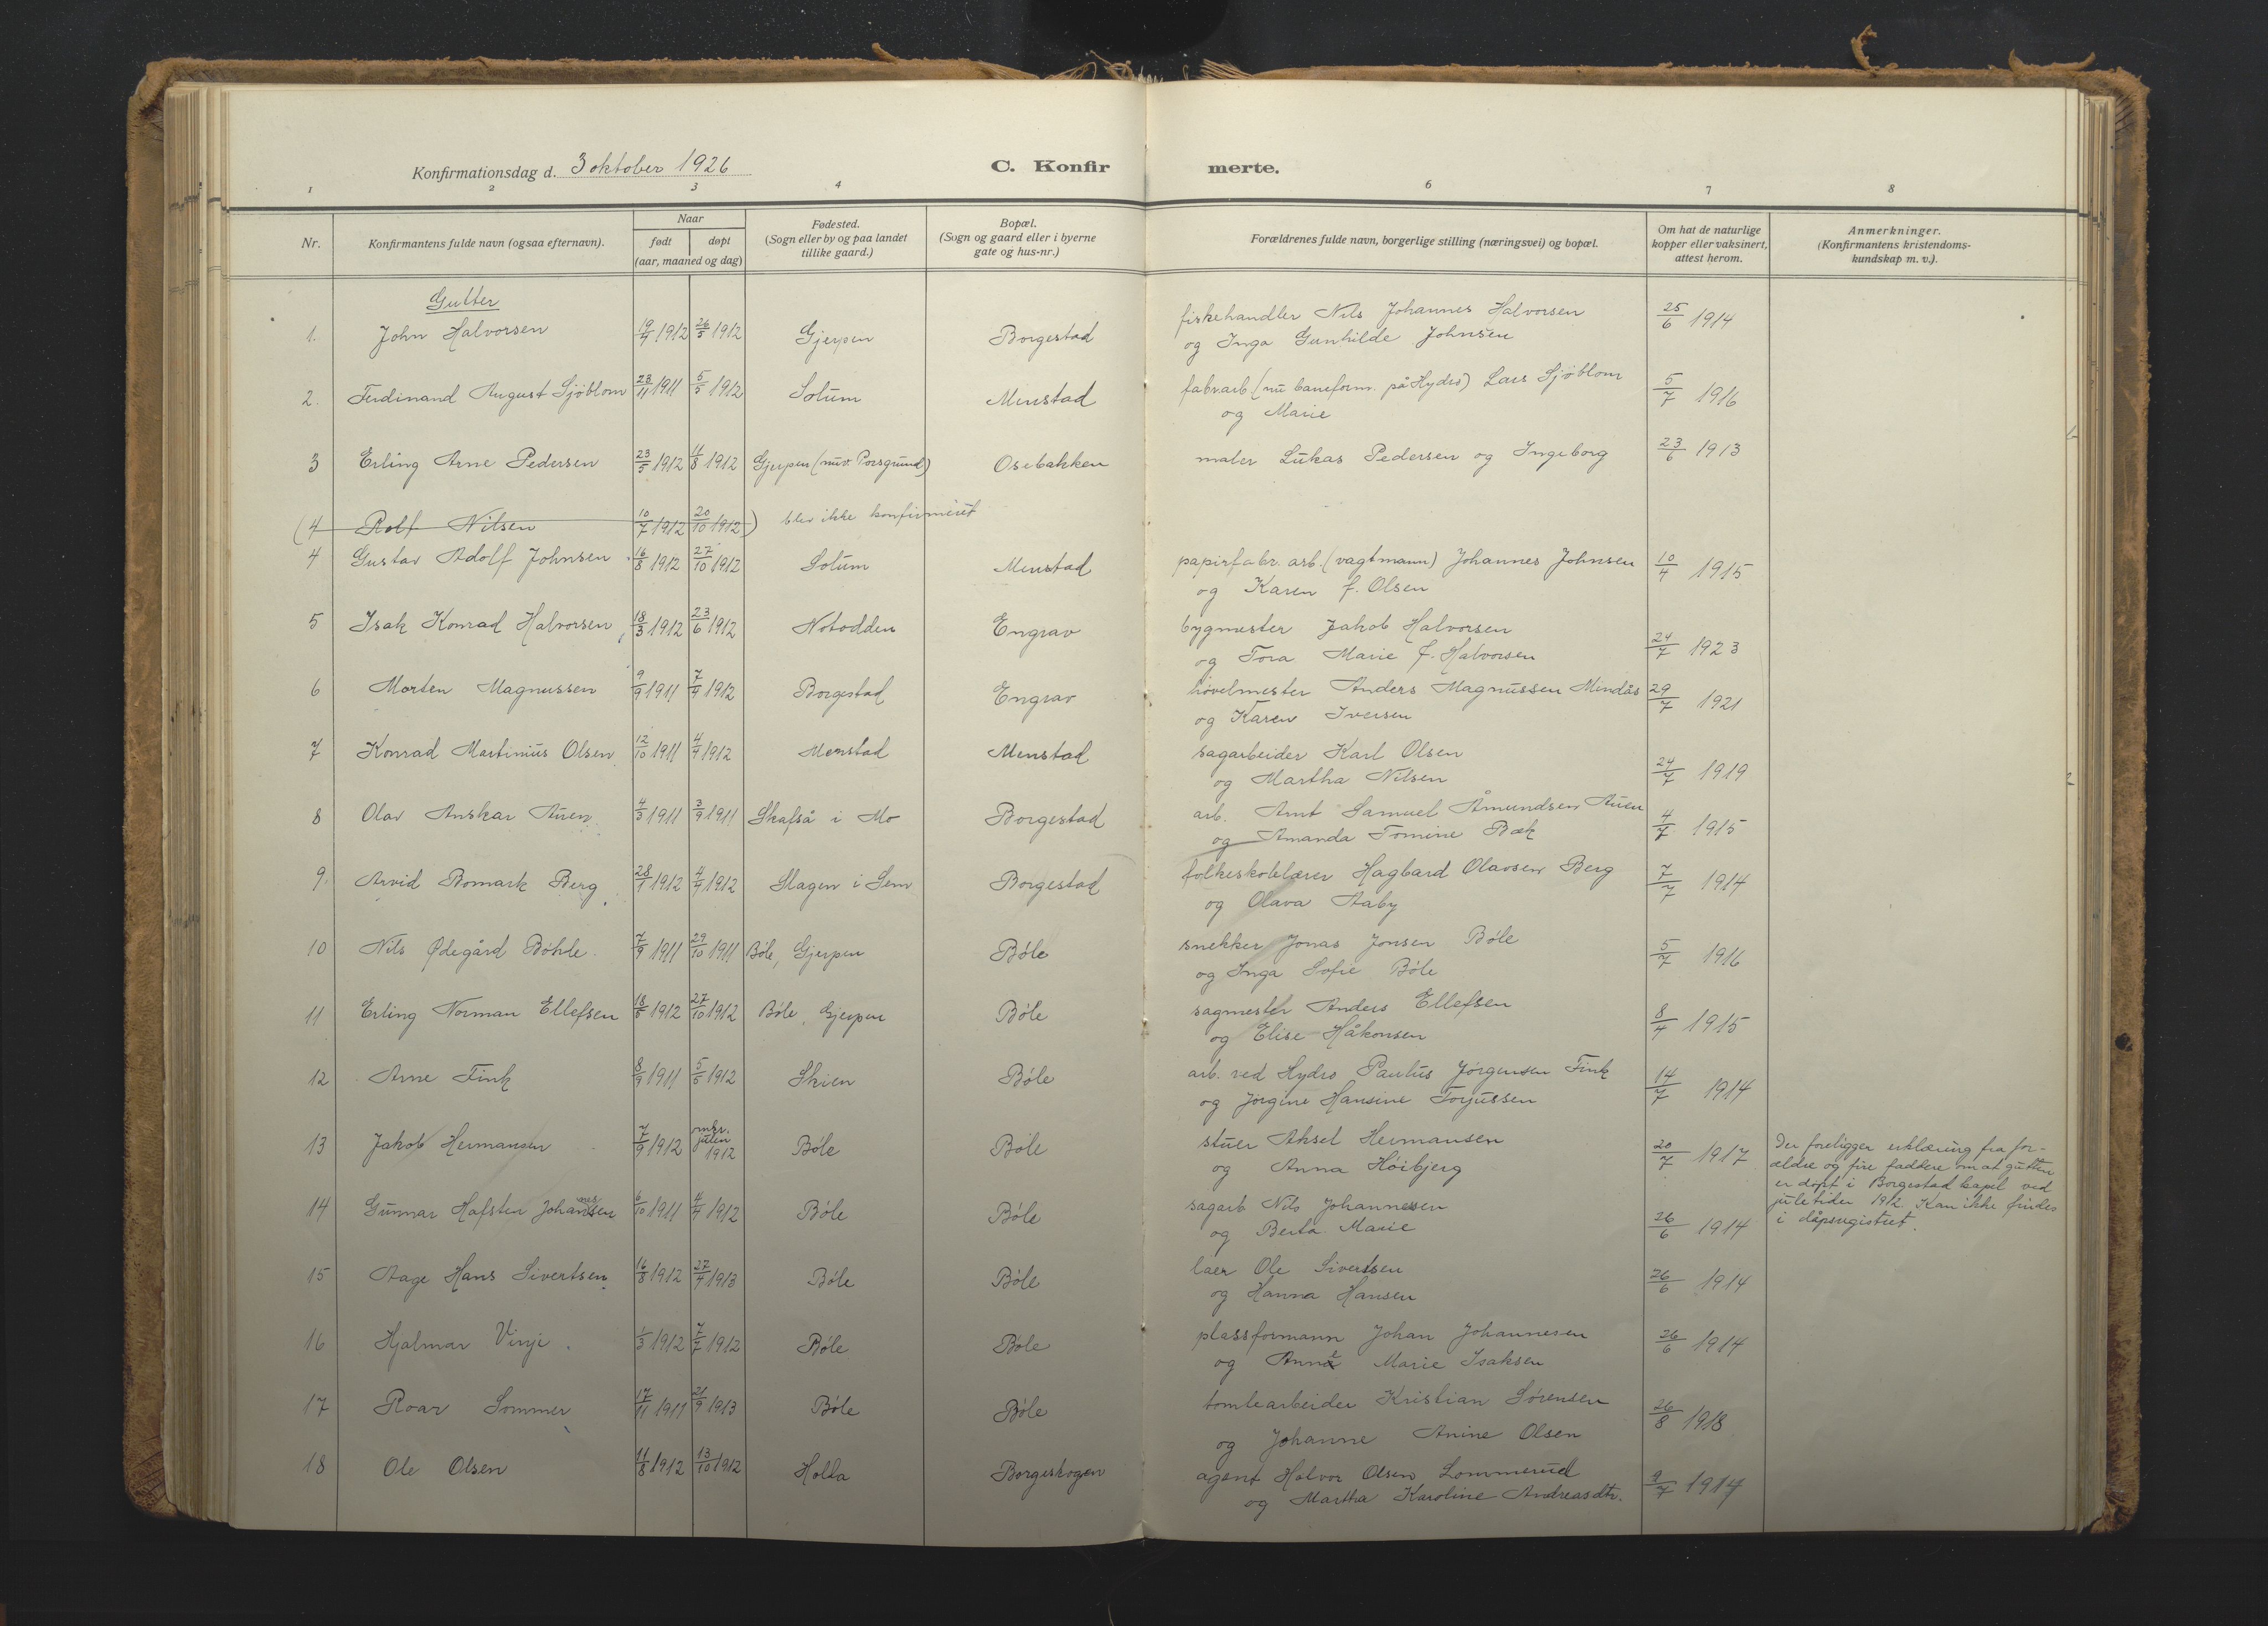 Konfirmationsdag d. 3 oktober 1926
C. Konfir merte.
1 2 3 4 6 7 8
Nr.
Konfirmantens fulde navn (ogsaa efternavn).
Naar
født døpt
(aar, maaned og dag)
Fødested.
(Sogn eller by og paa landet
tillike gaard.)
Bopæl.
(Sogn og gaard eller i byerne
gate og hus-nr.)
Forældrenes fulde navn, borgerlige stilling (næringsvei) og bopæl.
Om hat de naturlige
kopper eller vaksinert,
attest herom.
Anmerkninger.
(Konfirmantens kristendoms-
kundskap m. v.).
Gutter
1. John Halvorsen 19/4 1912 26/5 1912 Gjerpen Borgestad fiskehandler Nils Johannes Halvorsen 25/6 1914
og Inga Gunhilde Johnsen
2. Ferdinand August Sjöblom 23/11 1911 5/5 1912 Solum Menstad fabr.arb. (nu baneform. på Hydro) Lars Sjöblom 5/7 1916
og Marie
3 Erling Arne Pedersen 23/5 1912 4/8 1912 Gjerpen (nuv. Porsgrund) Osebakken maler Lukas Pedersen og Ingeborg 23/6 1913
(4 Rolf Nilsen 10/7 1912 20/10 1912) blev ikke konfirmeret
4 Gustav Adolf Johnsen 16/8 1912 27/10 1912 Solum Menstad papirfabr. arb. (vagtmann) Johannes Johnsen 10/4 1915
og Karen f. Olsen
5 Isak Konrad Halvorsen 18/3 1912 23/6 1912 Notodden Engrav bygmester Jakob Halvorsen
og Tora Marie f. Halvorsen 24/7 1923
6 Morten Magnussen 9/9 1911 7/4 1912 Borgestad Engrav høvelmester Anders Magnussen Mindås 29/7 1921
og Karen Iversen
7 Konrad Martinius Olsen 12/10 1911 4/4 1912 Menstad Menstad sagarbeider Karl Olsen
og Martha Nilsen 24/7 1919
8 Olav Anskar Auen 4/3 1911 3/9 1911 Skafså i Mo Borgestad arb. Amt Samuel Åmundsen Auen
og Amanda Tomine Bæk 4/7 1915
9. Arvid Bomark Berg 28/1 1912 4/4 1912 Slagen i Sem Borgestad folkeskolelærer Hagbard Olavsen Berg 7/7 1914
og Olava Aaby
10 Nils Ødegård Bøhle 7/9 1911 29/10 1911 Bøle, Gjerpen Bøle snekker Jonas Jonsen Bøle 5/7 1916
og Inga Sofie Bøle
11 Erling Norman Ellefsen 18/8 1912 27/10 1912 Bøle, Gjerpen Bøle sagmester Anders Ellefsen 8/4 1915
og Elise Håkonsen
12 Arne Fink 8/9 1911 5/5 1912 Skien Bøle arb. ved Hydro Paulus Jørgensen Fink 14/7 1914
og Jørgine Hansine Torjussen
13 Jakob Hermansen 7/9 1912 omkr. julen 1912 Bøle Bøle stuer Aksel Hermansen 20/7 1917
og Anna Høibjerg
Der foreligger erklæring fra for-
ældre og fire faddere om at gutten
er døpt i Borgestad kapel ved
juletider 1912. Kan ikke findes
i dåpsregistret.
14 Gunnar Hafsten Johannessen 6/10 1911 4/4 1912 Bøle Bøle sagarb Nils Johannessen
og Berta Marie 26/6 1914
15 Aage Hans Sivertsen 16/8 1912 27/4 1913 Bøle Bøle laer Ole Sivertsen 26/6 1914
og Hanna Hansen
16 Hjalmar Vinje 1/3 1912 7/7 1912 Bøle Bøle plassformann Johan Johannesen 26/6 1914
og Anne Marie Isaksen
17 Roar Sommer 17/11 1911 21/9 1913 Bøle Bøle tomtearbeider Kristian Sørensen 26/8 1918
og Johanne Anine Olsen
18 Ole Olsen 11/8 1912 13/10 1912 Holla Borgeskogen agent Halvor Olsen Lommerud 9/7 1914
og Martha Karoline Andreasdtr.